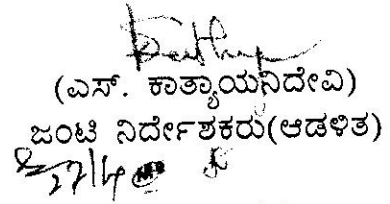 (ಎಸ್. ಕಾತ್ಯಾಯನಿದೇವಿ)
ಜಂಟಿ ನಿರ್ದೇಶಕರು(ಆಡಳಿತ)
27/4